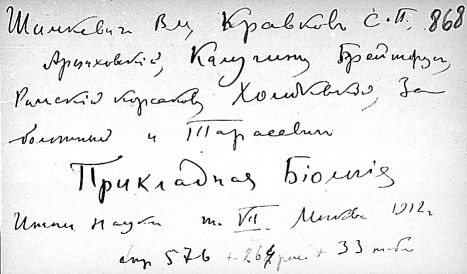 Шимкевич Вл, Кравков С.П. 868
Арциховский, Калугин, Брейтфус,
Римский Корсаков, Холодковский, За
болотный и Тарасевич
Прикладная Біологія
Итоги науки т. VII. Москва 1912 г.
стр 576 + 264 рис. + 33 табл